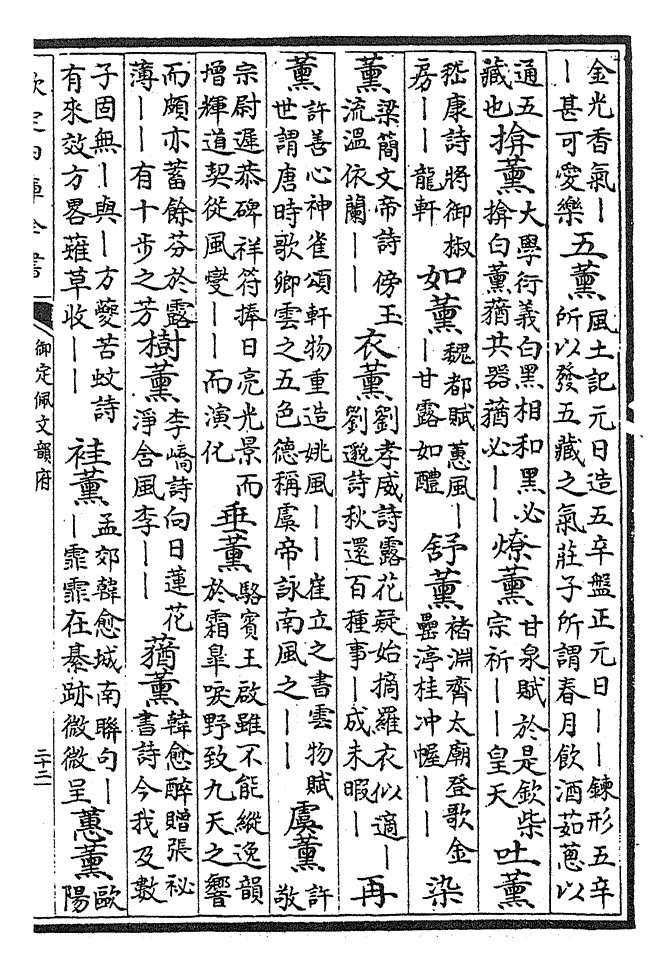 金光香氣丨丨甚可愛樂 五薰 風土記元日造五辛盤正元日丨丨鍊形五辛所以發五藏之氣莊子所謂春月飲酒茹蔥以
通五藏也 揜薰 大學衍義白黑相和黑必揜白薰蕕共器蕕必丨丨 燎薰 甘泉賦於是欽柴宗祈丨丨皇天 吐薰
嵇康詩將御椒房丨丨龍軒 如薰 魏都賦蕙風丨丨甘露如醴 舒薰 褚淵齊太廟登歌金罍渟桂沖幄丨丨 染
薰 梁簡文帝詩傍玉流溫依蘭丨丨 衣薰 劉孝威詩露花疑始摘羅衣似適丨劉邈詩秋還百種事丨成未暇丨 再
薰 許善心神雀頌軒物重造姚風丨丨崔立之書雲物賦世謂唐時歌卿雲之五色德稱虞帝詠南風之丨丨 虞薰 許敬
宗尉遲恭碑祥符捧日亮光景而增輝道契從風變丨丨而演化 垂薰 駱賓王啟雖不能縱逸韻於霜皐唳野致九天之響
而頗亦蓄餘芬於露薄丨丨有十步之芳 樹薰 李嶠詩向日蓮花淨含風李丨丨 蕕薰 韓愈醉贈張祕書詩今我及數
子固無丨與丨方夔苦蚊詩有來效方畧薙草收丨丨 袿薰 孟郊韓愈城南聯句丨丨霏霏在綦跡微微呈 蕙薰 歐陽
欽定四庫全書
御定佩文韻府
二十二